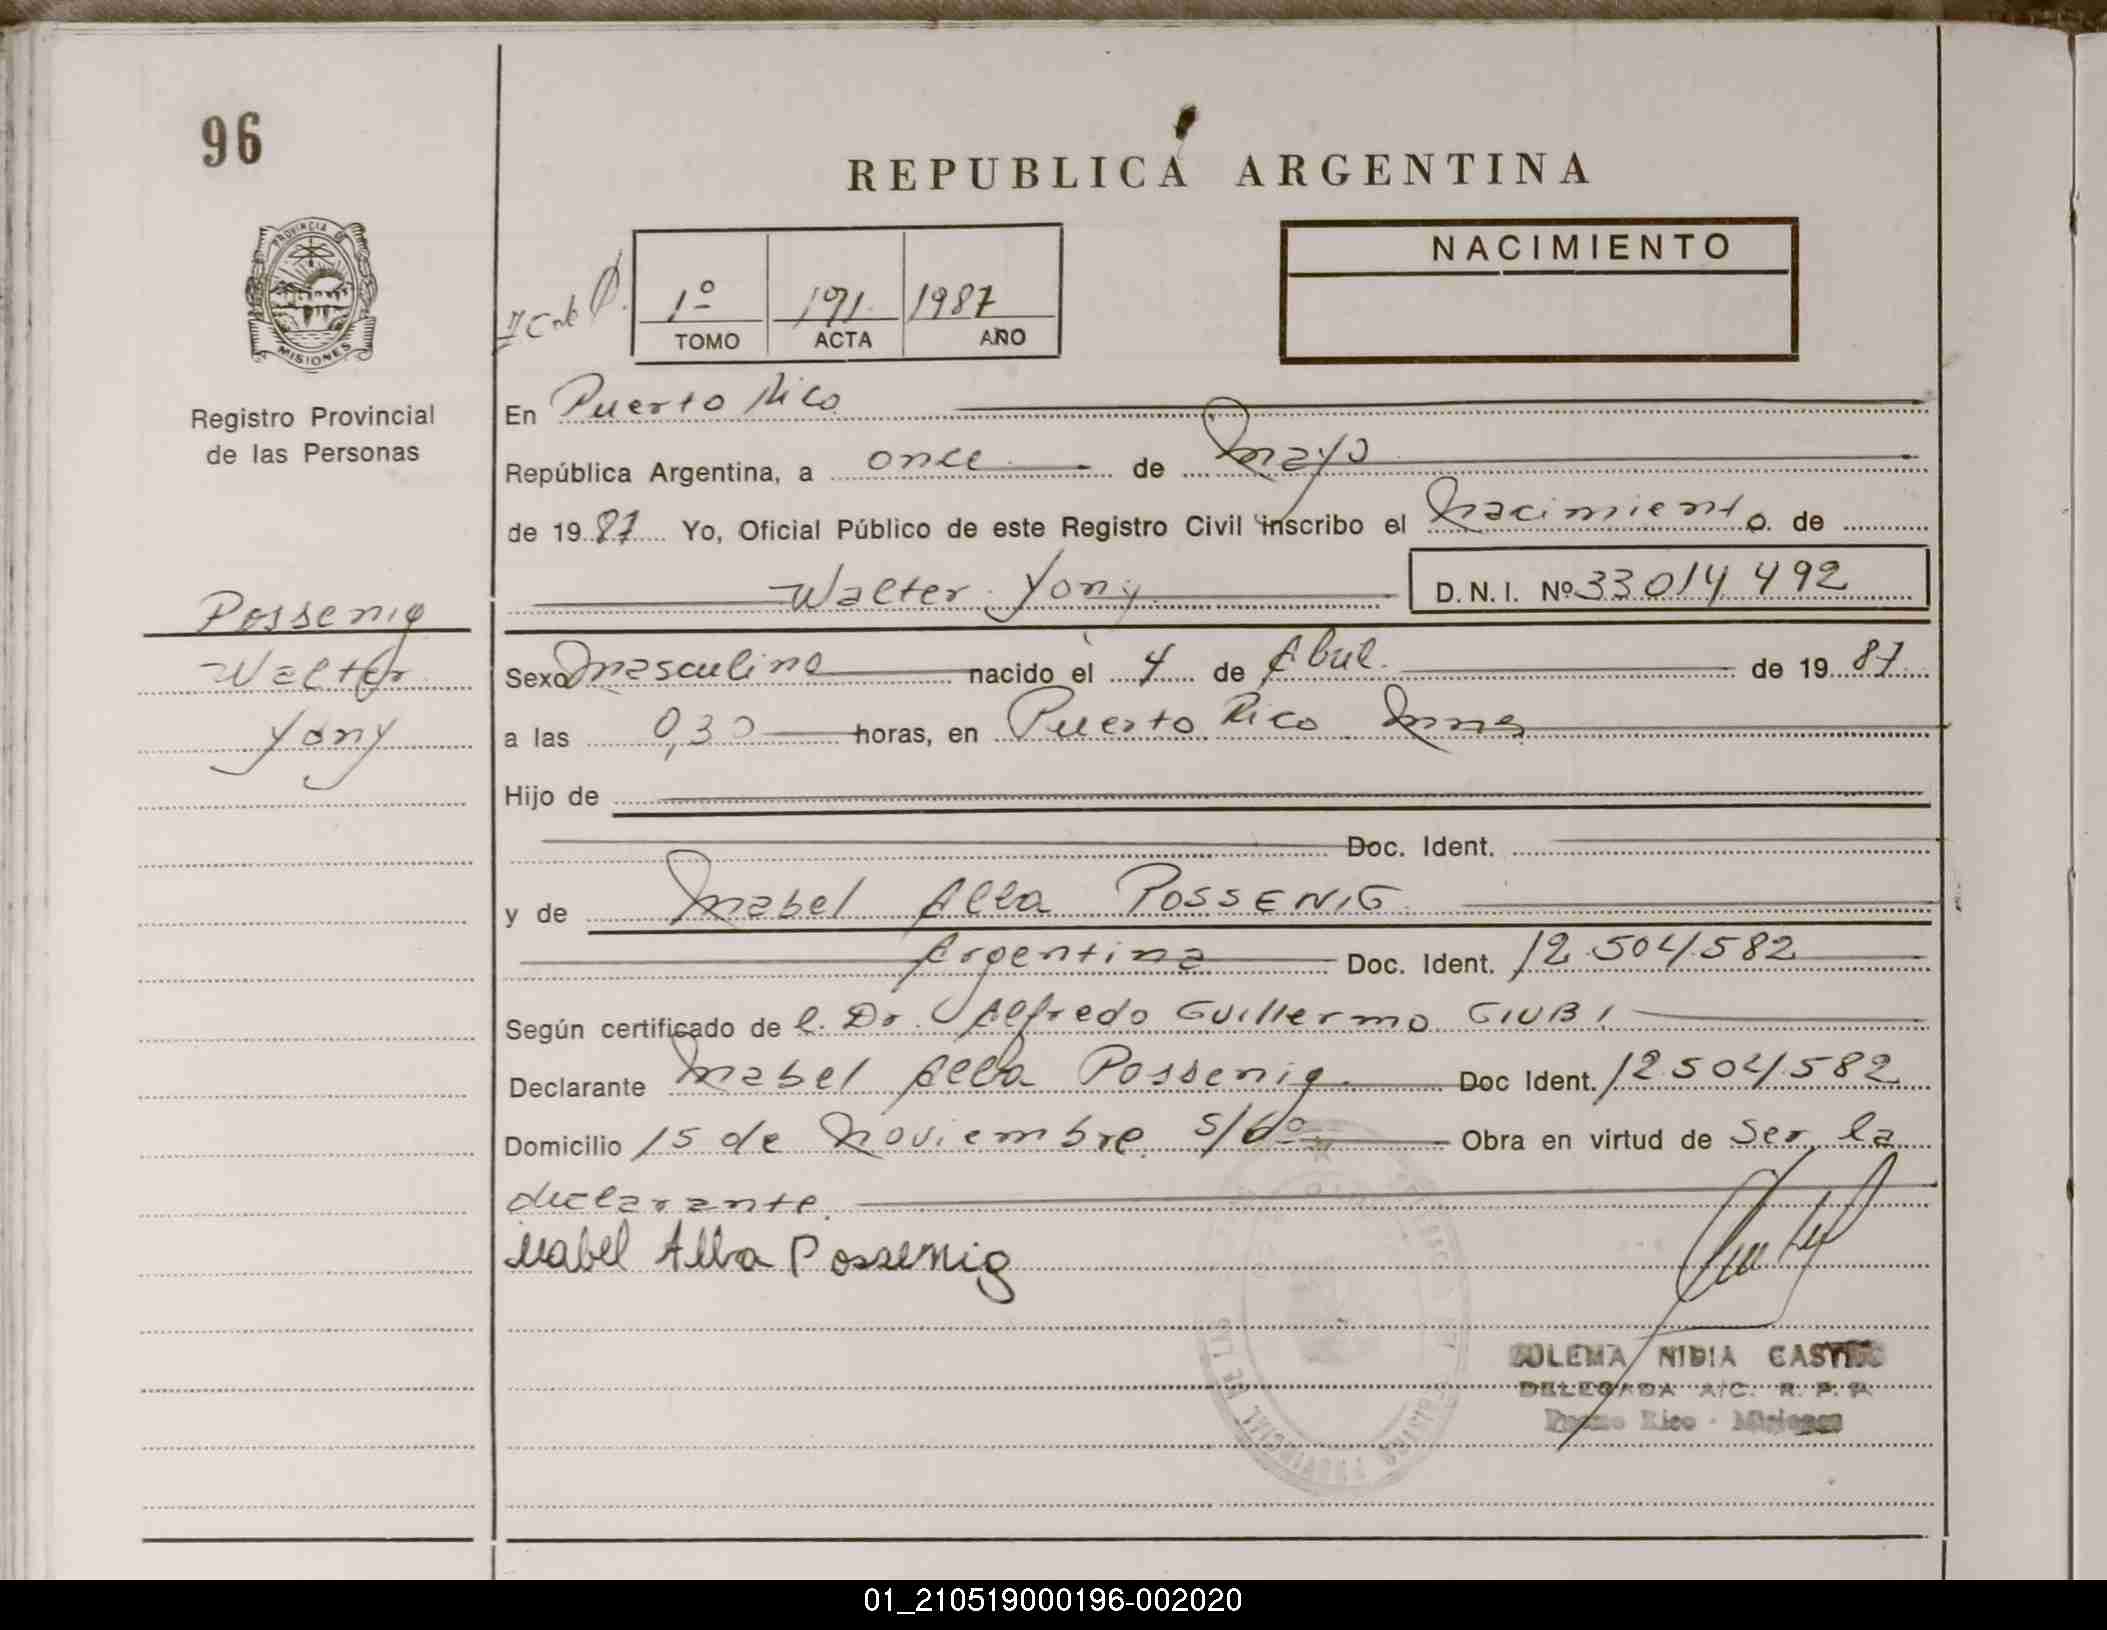 96
REPUBLICA ARGENTINA
PROVINCIA DE
MISIONES
NACIMIENTO
1º 191 1987
TOMO ACTA AÑO
Registro Provincial
de las Personas
En Puerto Rico
República Argentina, a once de mayo
de 1987 Yo, Oficial Público de este Registro Civil inscribo el Nacimiento de
Walter Yony D. N. I. Nº 33 014 492
Possenig
Walter
Yony
Sexo masculino nacido el 4 de Abril de 1987
a las 0,30 horas, en Puerto Rico Mnes
Hijo de
Doc. Ident.
y de Mabel Alba POSSENIG
Argentina Doc. Ident. 12.504.582
Según certificado de l. Dr. Alfredo Guillermo GIUBI
Declarante Mabel Alba Possenig Doc Ident. 12.504.582
Domicilio 15 de Noviembre s/nº Obra en virtud de ser la
declarante.
Mabel Alba Possenig
NIDIA
DELEGADA A/C. R. P. P.
Puerto Rico - Misiones
REGISTRO PROVINCIAL DE LAS
01_210519000196-002020